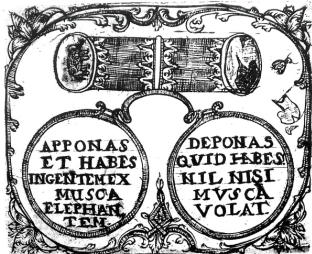 APPONAS
ET HABES
INGENTEM EX
MUSCA
ELEPHAN,
TEM
DEPONAS
QUID HABES
NIL NISI
MVSCA
VOLAT.